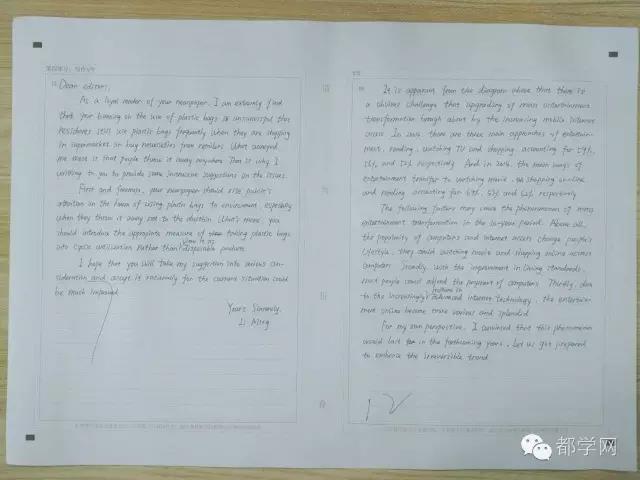 Dear editors,
As a loyal reader of your newspaper, I am extremely find
that your banning on the use of plastic bags is unsuccessful that
Residenes still use plastic bags frequently when they are shopping
in supermarket or buy necessities from retailers. What annoyed
me most is that people throw it away anywhere. That is why I
writing to you to provide some immersive suggestions on the issues.
First and foremost, your newspaper should rise public's
attention on the harm of using plastic bags to environment, especially
when they throw it away not to the dustbin. What's more, you
should introduce the appropriate measure of taking plastic bags
into cyclic utilization Rather than view it as disposable products.
I hope that you will take my suggestion into serious con-
sideration and accept it rationally for the current situation could
be much improved.
Yours Sincerely,
Li Ming
It is apparent from the diagram above that there is
a obvious challenge that upgrading of mass entertainment
transformation brough about by the increasing mobile internet
access. In 2006, there are three main approaches of entertain-
ment, reading, watching TV and shopping, accounting for
respectively. And in 2016, the main ways of
entertainment transfer to watching movie, shopping on-line
and reading accounting for respectively.
The following factors may cause the phenomenon of mass
entertainment transformation in the 10-year period. Above all,
the popularity of computers and internet access change people's
lifestyle, they could watching movie and shopping online across
computer. Secondly, with the improvement in living standards,
most people could afford the payment of computers. Thirdly, due
to the increasingly advanced internet technology, the entertain-
ment online became more various and splendid.
For my own perspective, I convinced that this phenomenon
would last in the forthcoming years. Let us get prepared
to embrace the irreversible trend.
12
都学网